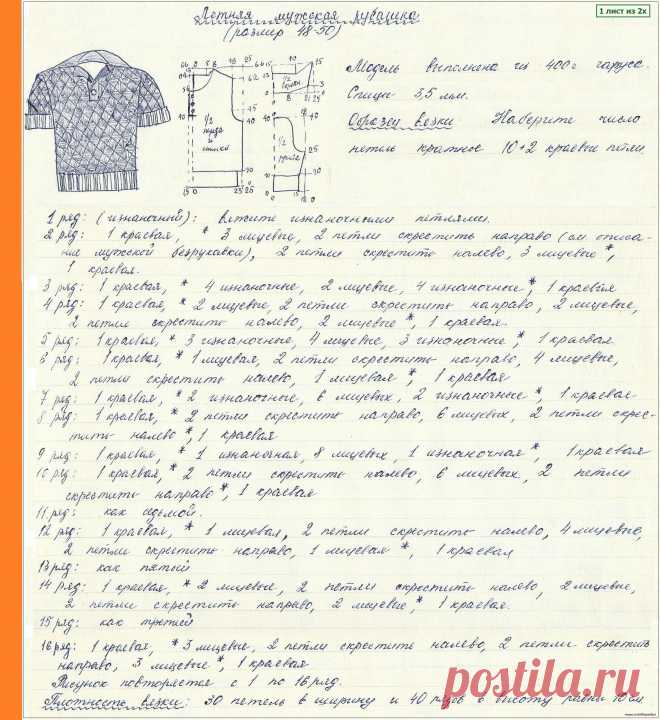 Летняя мужская рубашка
1 лист из 2х
(размер 48-50)
Модель выполнена из 400г гаруса.
Спицы 3,5 мм.
Образец вязки Наберите число
петель кратное 10+2 краевые петли
1/2 переда и спинки
1/2
1 ряд: (изнаночный): вяжите изнаночными петлями.
2 ряд: 1 краевая, * 3 лицевые, 2 петли скрестить направо (см описа-
ние мужской безрукавки), 2 петли скрестить налево, 3 лицевые *,
1 краевая.
3 ряд: 1 краевая, * 4 изнаночные, 2 лицевые, 4 изнаночные *, 1 краевая
4 ряд: 1 краевая, * 2 лицевые, 2 петли скрестить направо, 2 лицевые,
2 петли скрестить налево, 2 лицевые *, 1 краевая.
5 ряд: 1 краевая, * 3 изнаночные, 4 лицевые, 3 изнаночные *, 1 краевая
6 ряд: 1 краевая, * 1 лицевая, 2 петли скрестить направо, 4 лицевые,
2 петли скрестить налево, 1 лицевая *, 1 краевая
7 ряд: 1 краевая, * 2 изнаночные, 6 лицевых, 2 изнаночные *, 1 краевая
8 ряд: 1 краевая, * 2 петли скрестить направо, 6 лицевых, 2 петли скрес-
тить налево *, 1 краевая
9 ряд: 1 краевая, * 1 изнаночная, 8 лицевых, 1 изнаночная *, 1 краевая
10 ряд: 1 краевая, * 2 петли скрестить налево, 6 лицевых, 2 петли
скрестить направо *, 1 краевая
11 ряд: как седьмой.
12 ряд: 1 краевая, * 1 лицевая, 2 петли скрестить налево, 4 лицевые,
2 петли скрестить направо, 1 лицевая *, 1 краевая
13 ряд: как пятый
14 ряд: 1 краевая, * 2 лицевые, 2 петли скрестить налево, 2 лицевые,
2 петли скрестить направо, 2 лицевые *, 1 краевая.
15 ряд: как третий
16 ряд: 1 краевая, * 3 лицевые, 2 петли скрестить налево, 2 петли скрестить
направо, 3 лицевые *, 1 краевая
Рисунок повторяется с 1 по 16 ряд.
Плотность вязки: 30 петель в ширину и 40 рядов в высоту равны 10 см
postila.ru